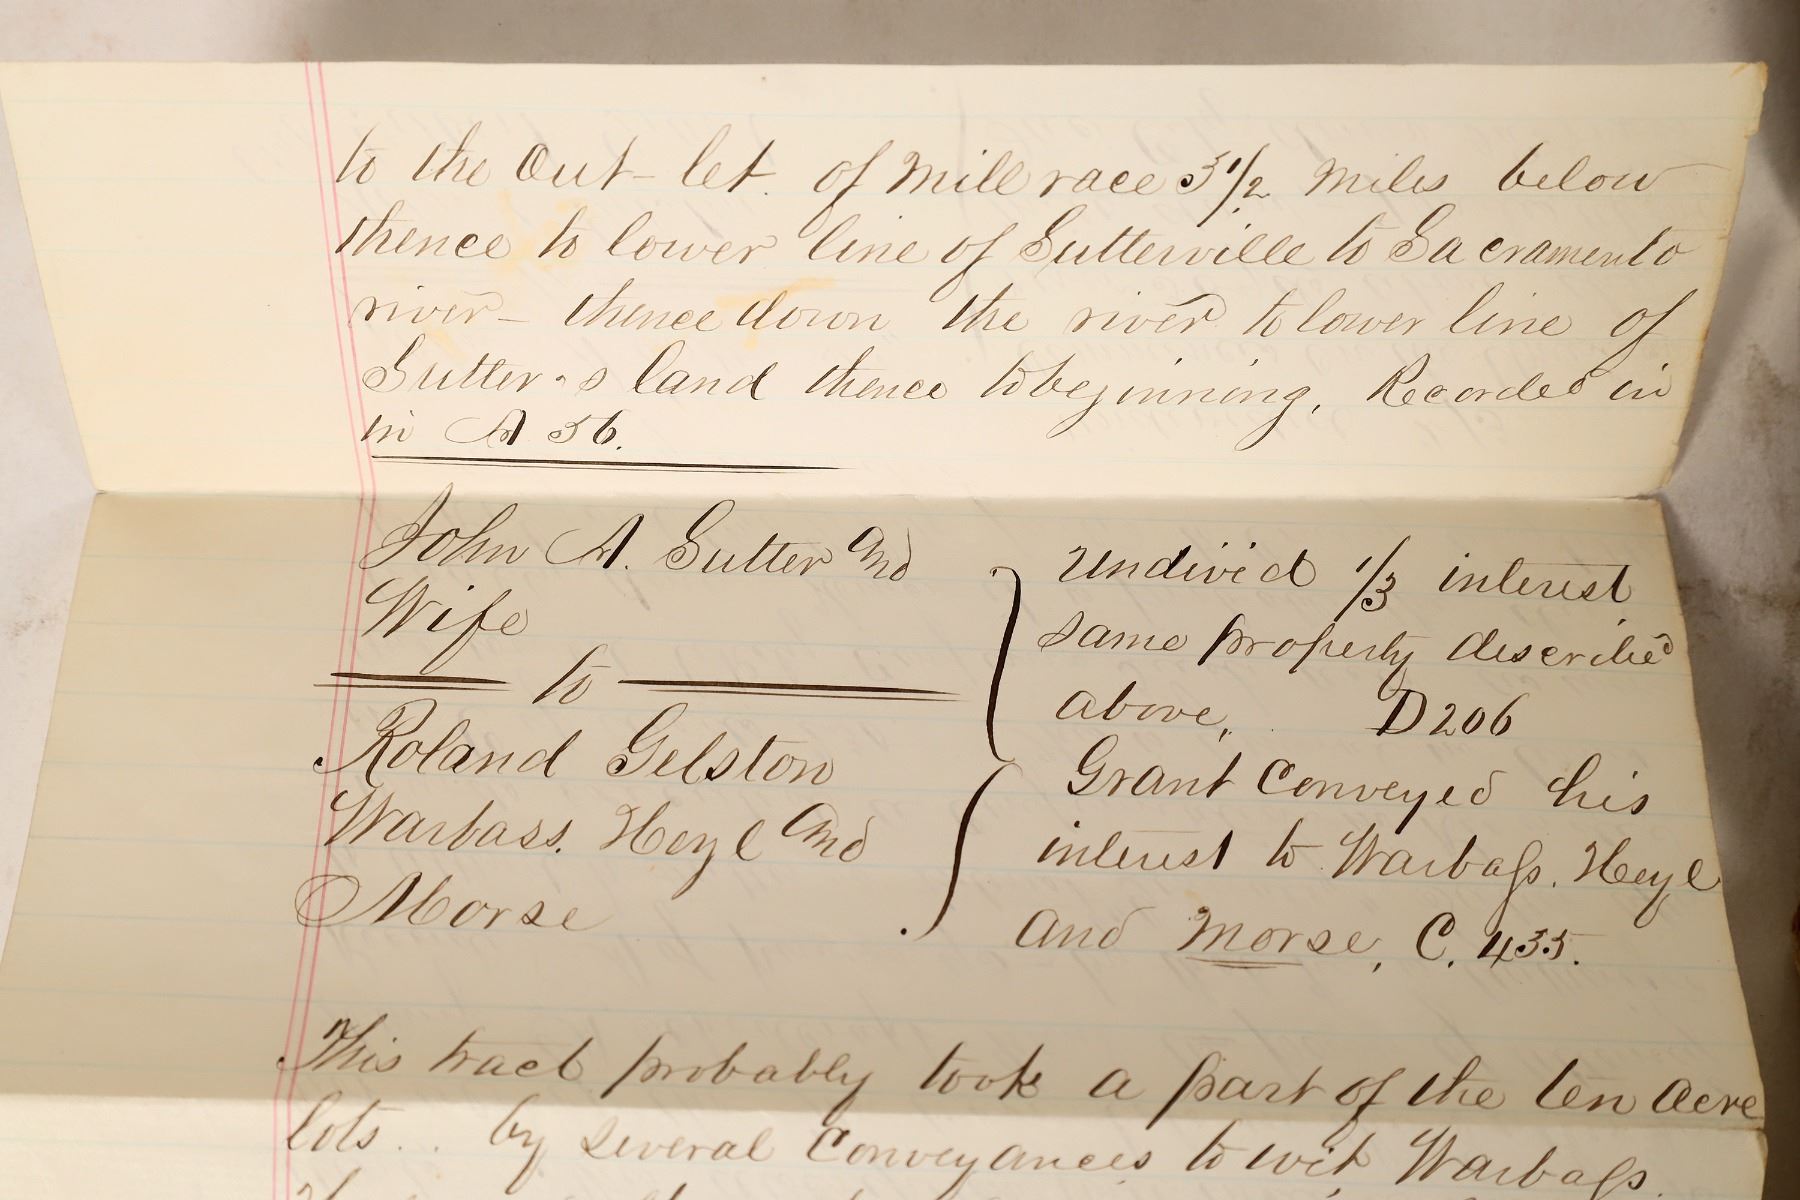 to the Out-let. of Mill race 3 1/2 miles below
thence to lower line of Sutterville to Sacramento
river- thence down the river to lower line of
Sutter's land thence to beginning, Recorded in
in A 56.
John A. Sutter And
Wife
to
Roland Gelston
Warbass. Heyl And
Morse
Undivi'd 1/3 interest
same property describe'd
above, D 206
Grant Conveyed his
interest to Warbass. Heyl
And Morse, C. 435.
This tract probably took a part of the ten Acre
lots.. by several Conveyances to wit, Warbass.